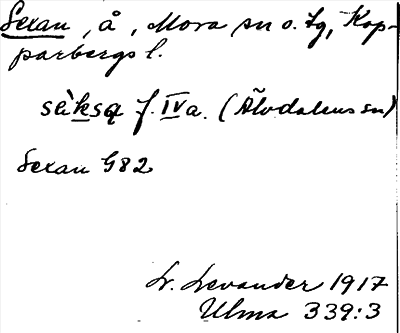 Sexan, å, Mora sn o. tg, Kop-
parbergs l.
sèksą f. IV a. (Älvdalens sn)
Sexan G82
L. Levander 1917
Ulma 339:3